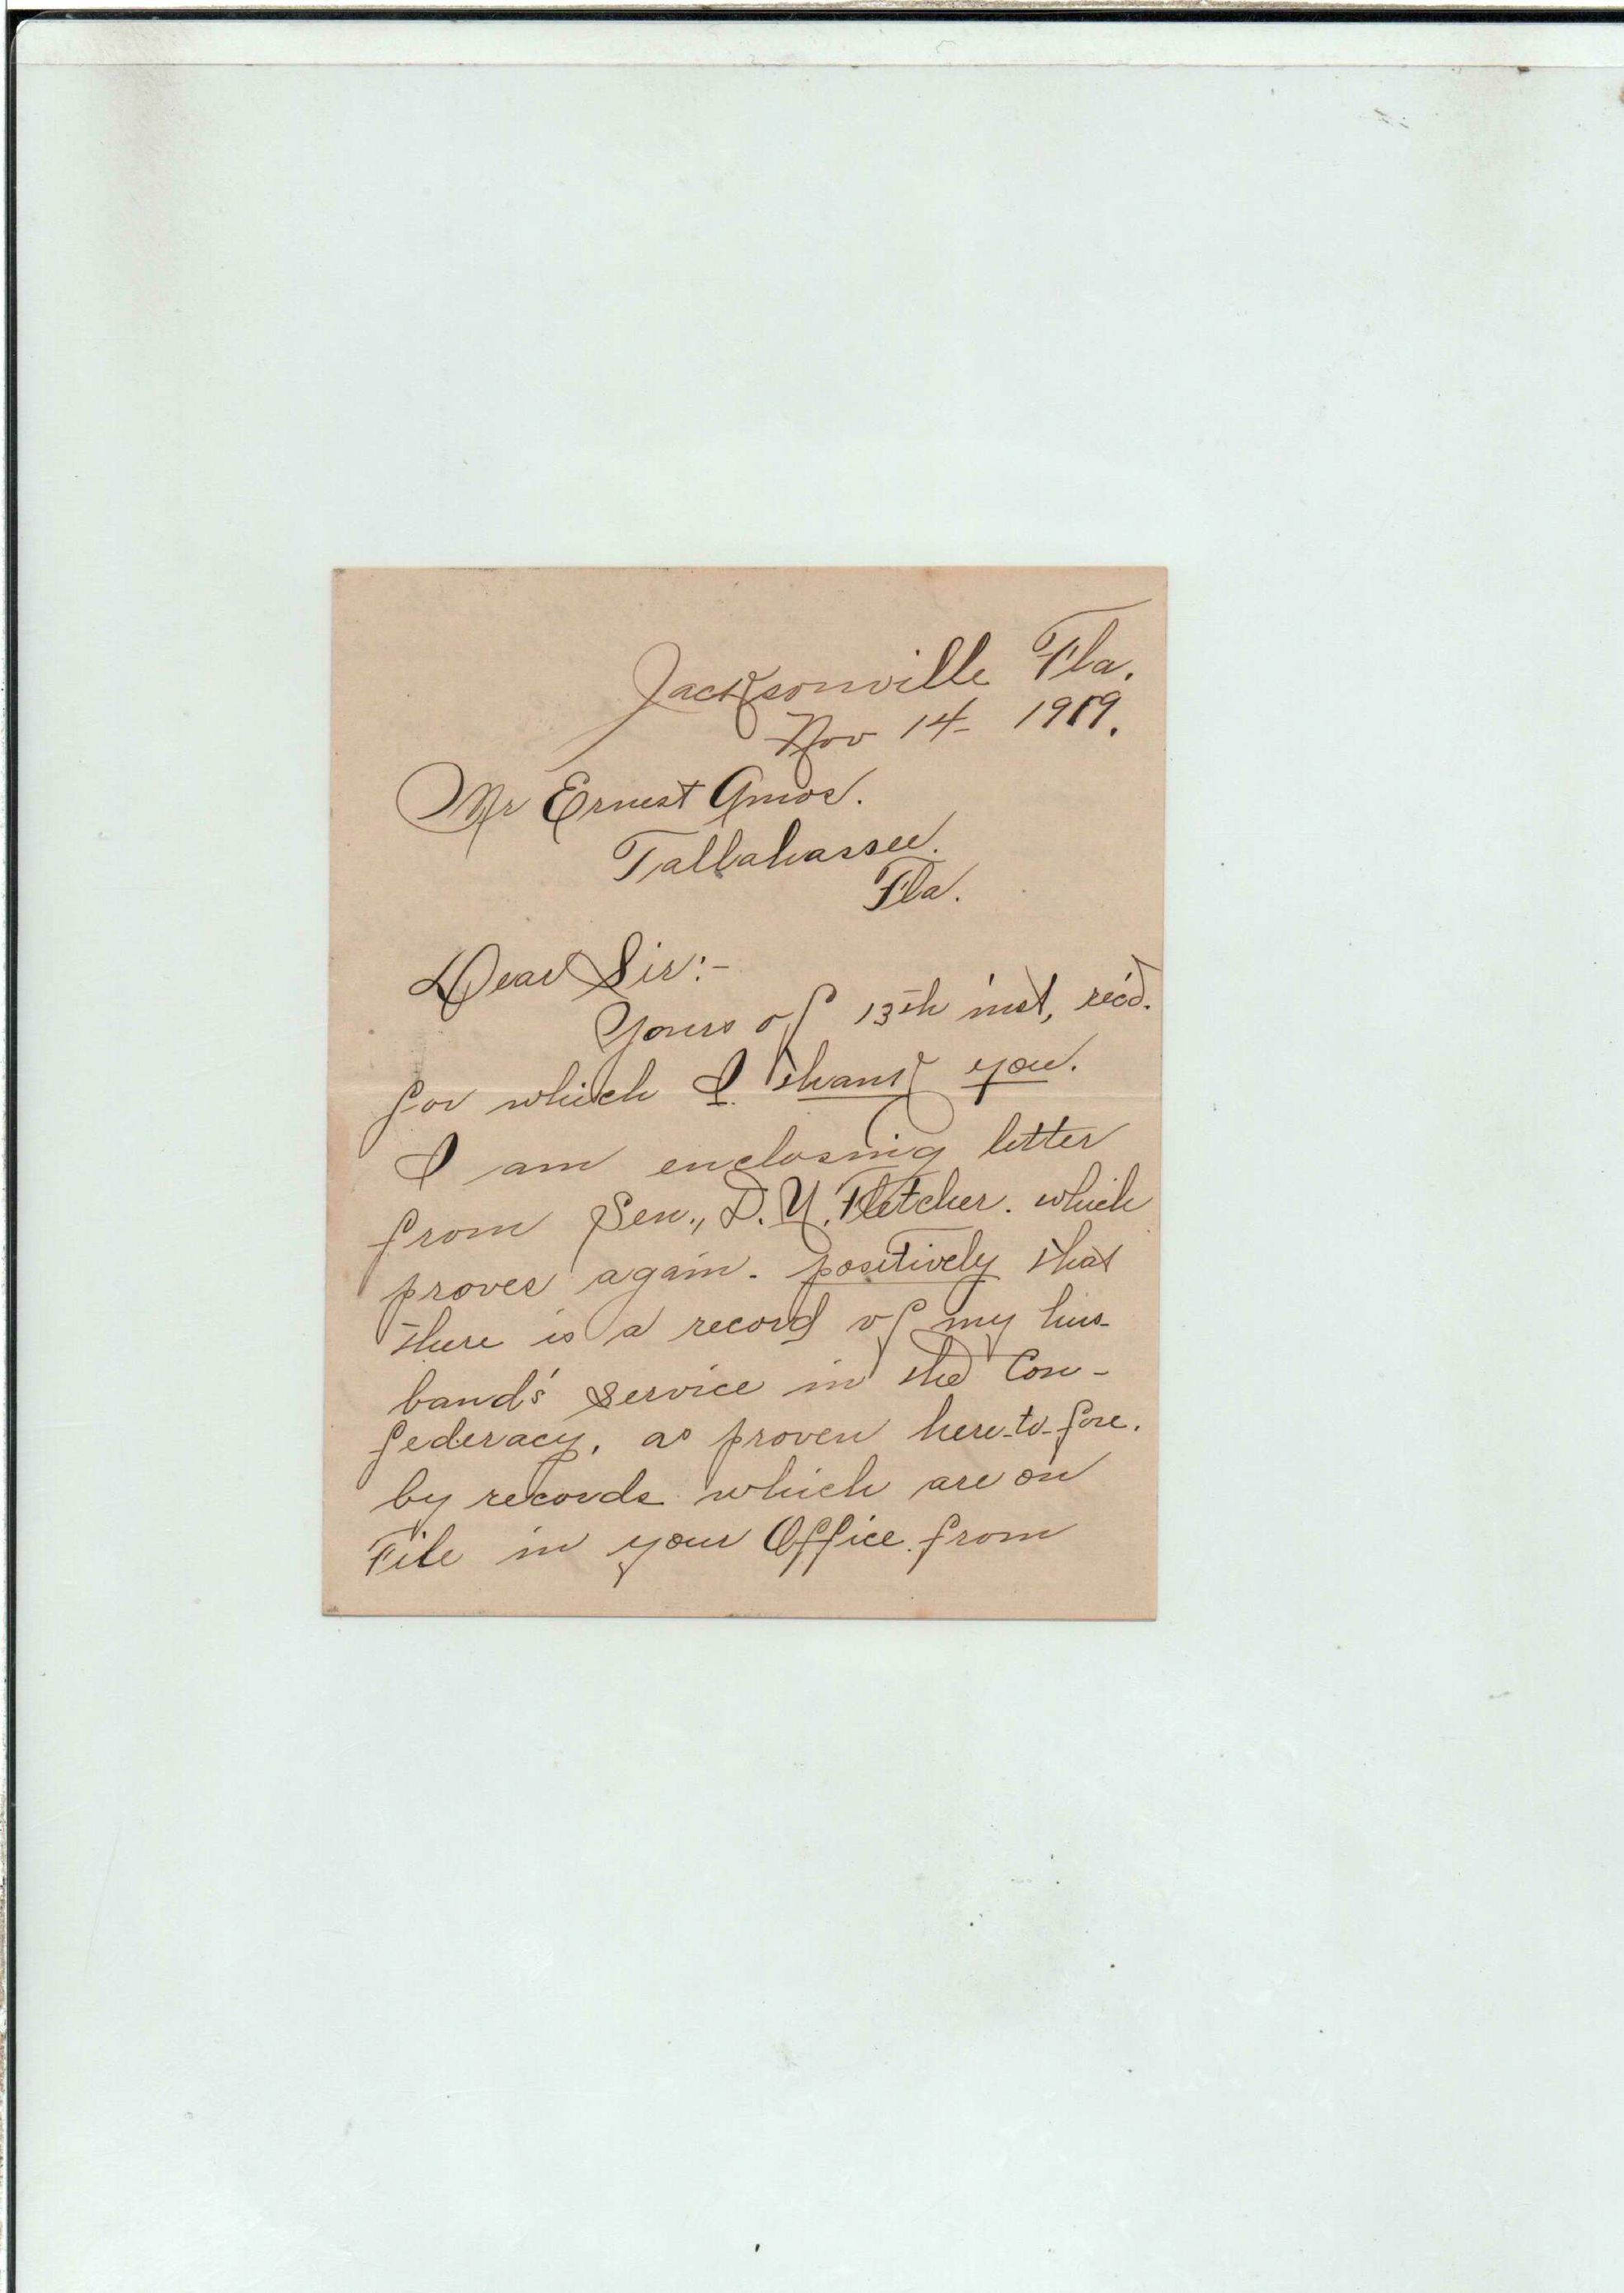 Jacksonville Fla.
Nov 14 - 1919.
Mr Ernest Amos.
Tallahassee.
Fla.
Dear Sir:-
Yours of 13th inst, rec'd.
for which I thank you.
I am enclosing letter
from Sen., D. U. Fletcher. which
proves again. positively that
there is a record of my hus-
band's service in the Con-
federacy, as proven here-to-fore.
by records which are on
File in your Office. from